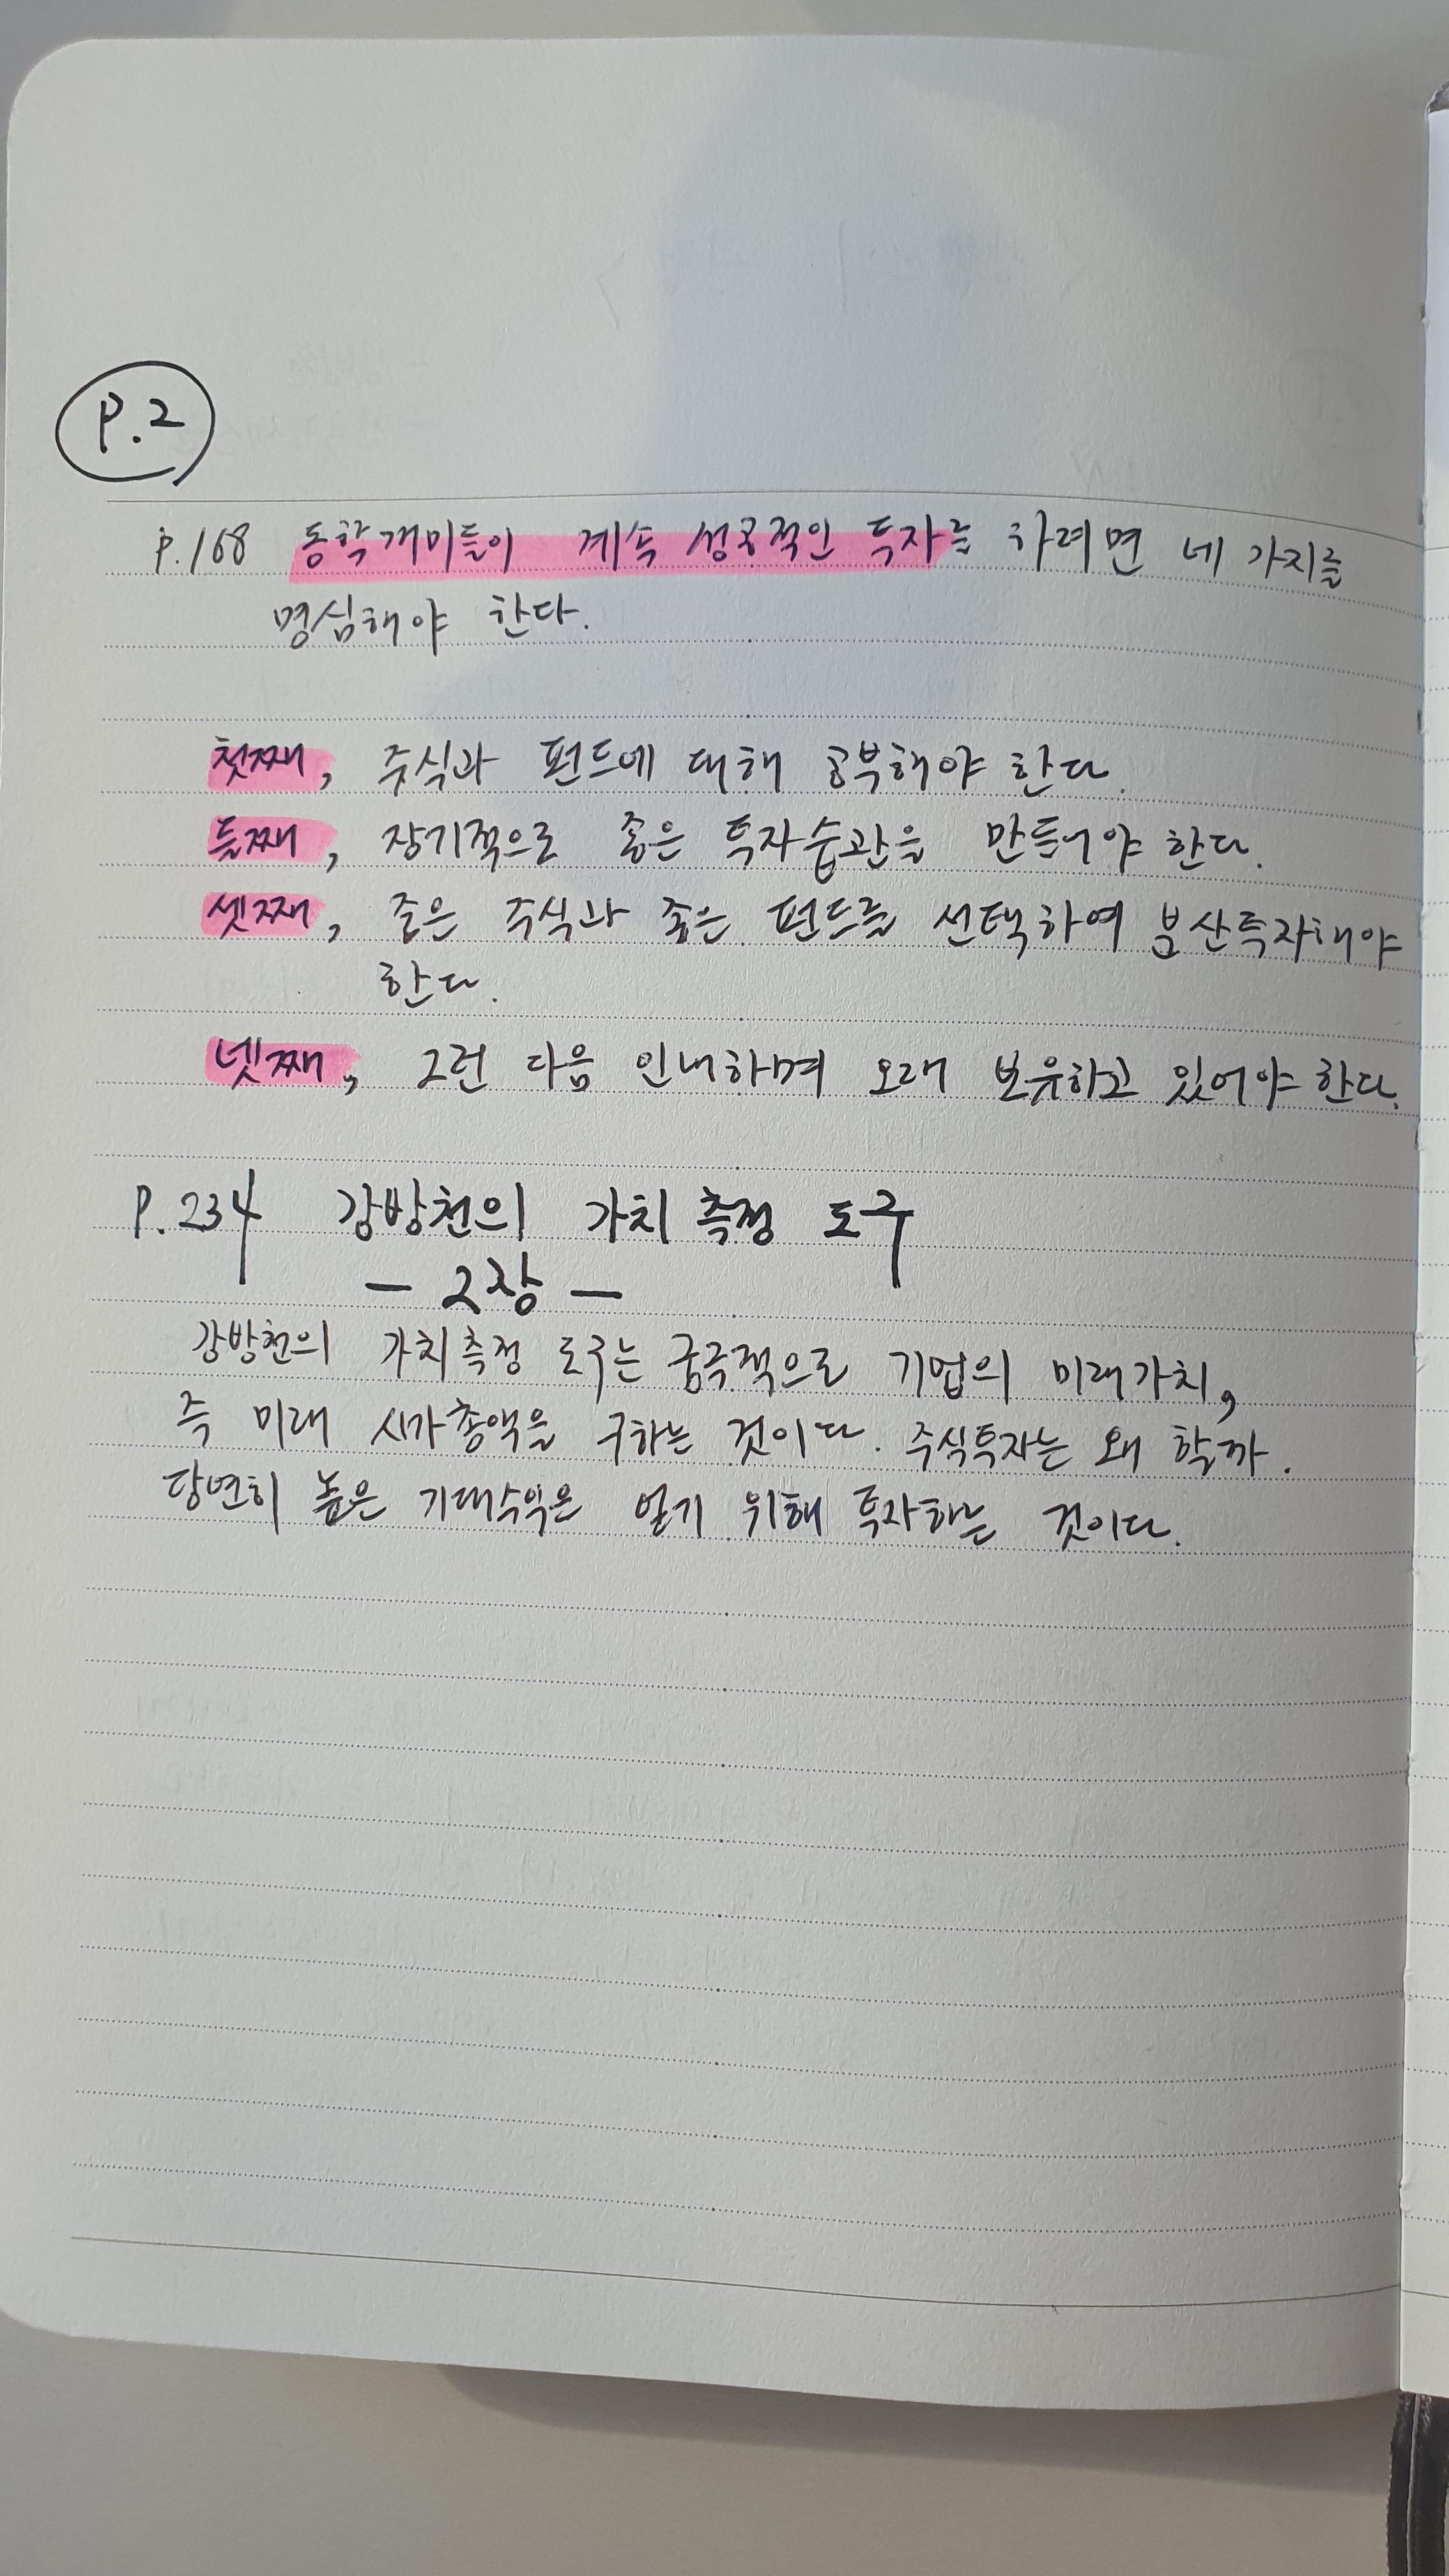 P.2
P.168 동학개미들이 계속 성공적인 투자를 하려면 네 가지를
명심해야 한다.
첫째, 주식과 펀드에 대해 공부해야 한다.
둘째, 장기적으로 좋은 투자습관을 만들어야 한다.
셋째, 좋은 주식과 좋은 펀드를 선택하여 분산투자해야
한다.
넷째, 그런 다음 인내하며 오래 보유하고 있어야 한다.
P.234 강방천의 가치 측정 도구
- 2장 -
강방천의 가치측정 도구는 궁극적으로 기업의 미래가치,
즉 미래 시가총액을 구하는 것이다. 주식투자는 왜 할까.
당연히 높은 기대수익은 얻기 위해 투자하는 것이다.